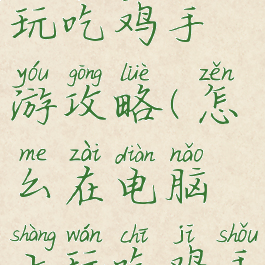 玩吃鸡手
yóu gōng lüè zěn
游攻略(怎
me zài diàn nǎo
么在电脑
shàng wán chī jī shǒu
上玩吃鸡手